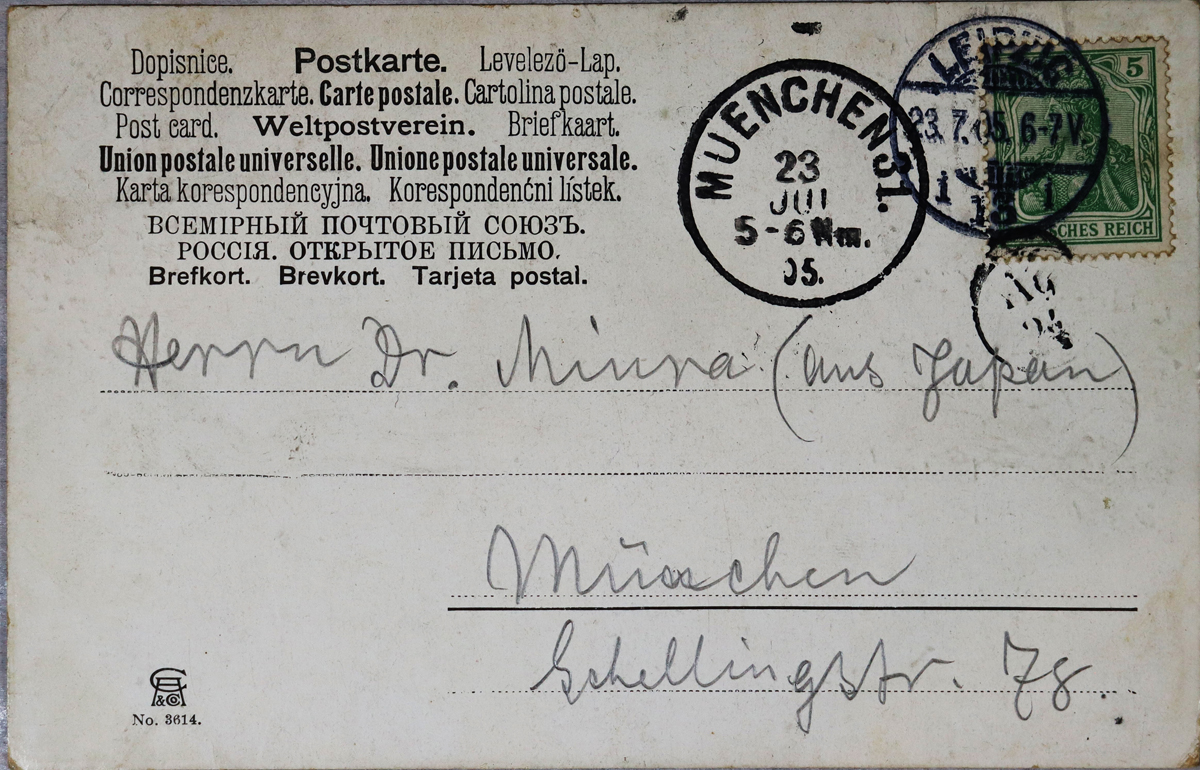 Dopisnice. Postkarte. Levelezö-Lap.
Correspondenzkarte. Carte postale. Cartolina postale.
Post card. Weltpostverein. Briefkaart.
Union postale universelle. Unione postale universale.
Karta korespondencyjna. Korespondenćni lístek.
ВСЕМІРНЫЙ ПОЧТОВЫЙ СОЮЗЪ.
РОССІЯ. ОТКРЫТОЕ ПИСЬМО.
Brefkort. Brevkort. Tarjeta postal.
MUENCHEN 31.
23
JUL
5-6 Nm.
05.
LEIPZIG
23.7.05. 6-7V.
1 13 1
5
SCHES REICH
24
Herrn Dr. Miura (aus Japan)
München
Schellingstr. 78.
A&Co
No. 3614.